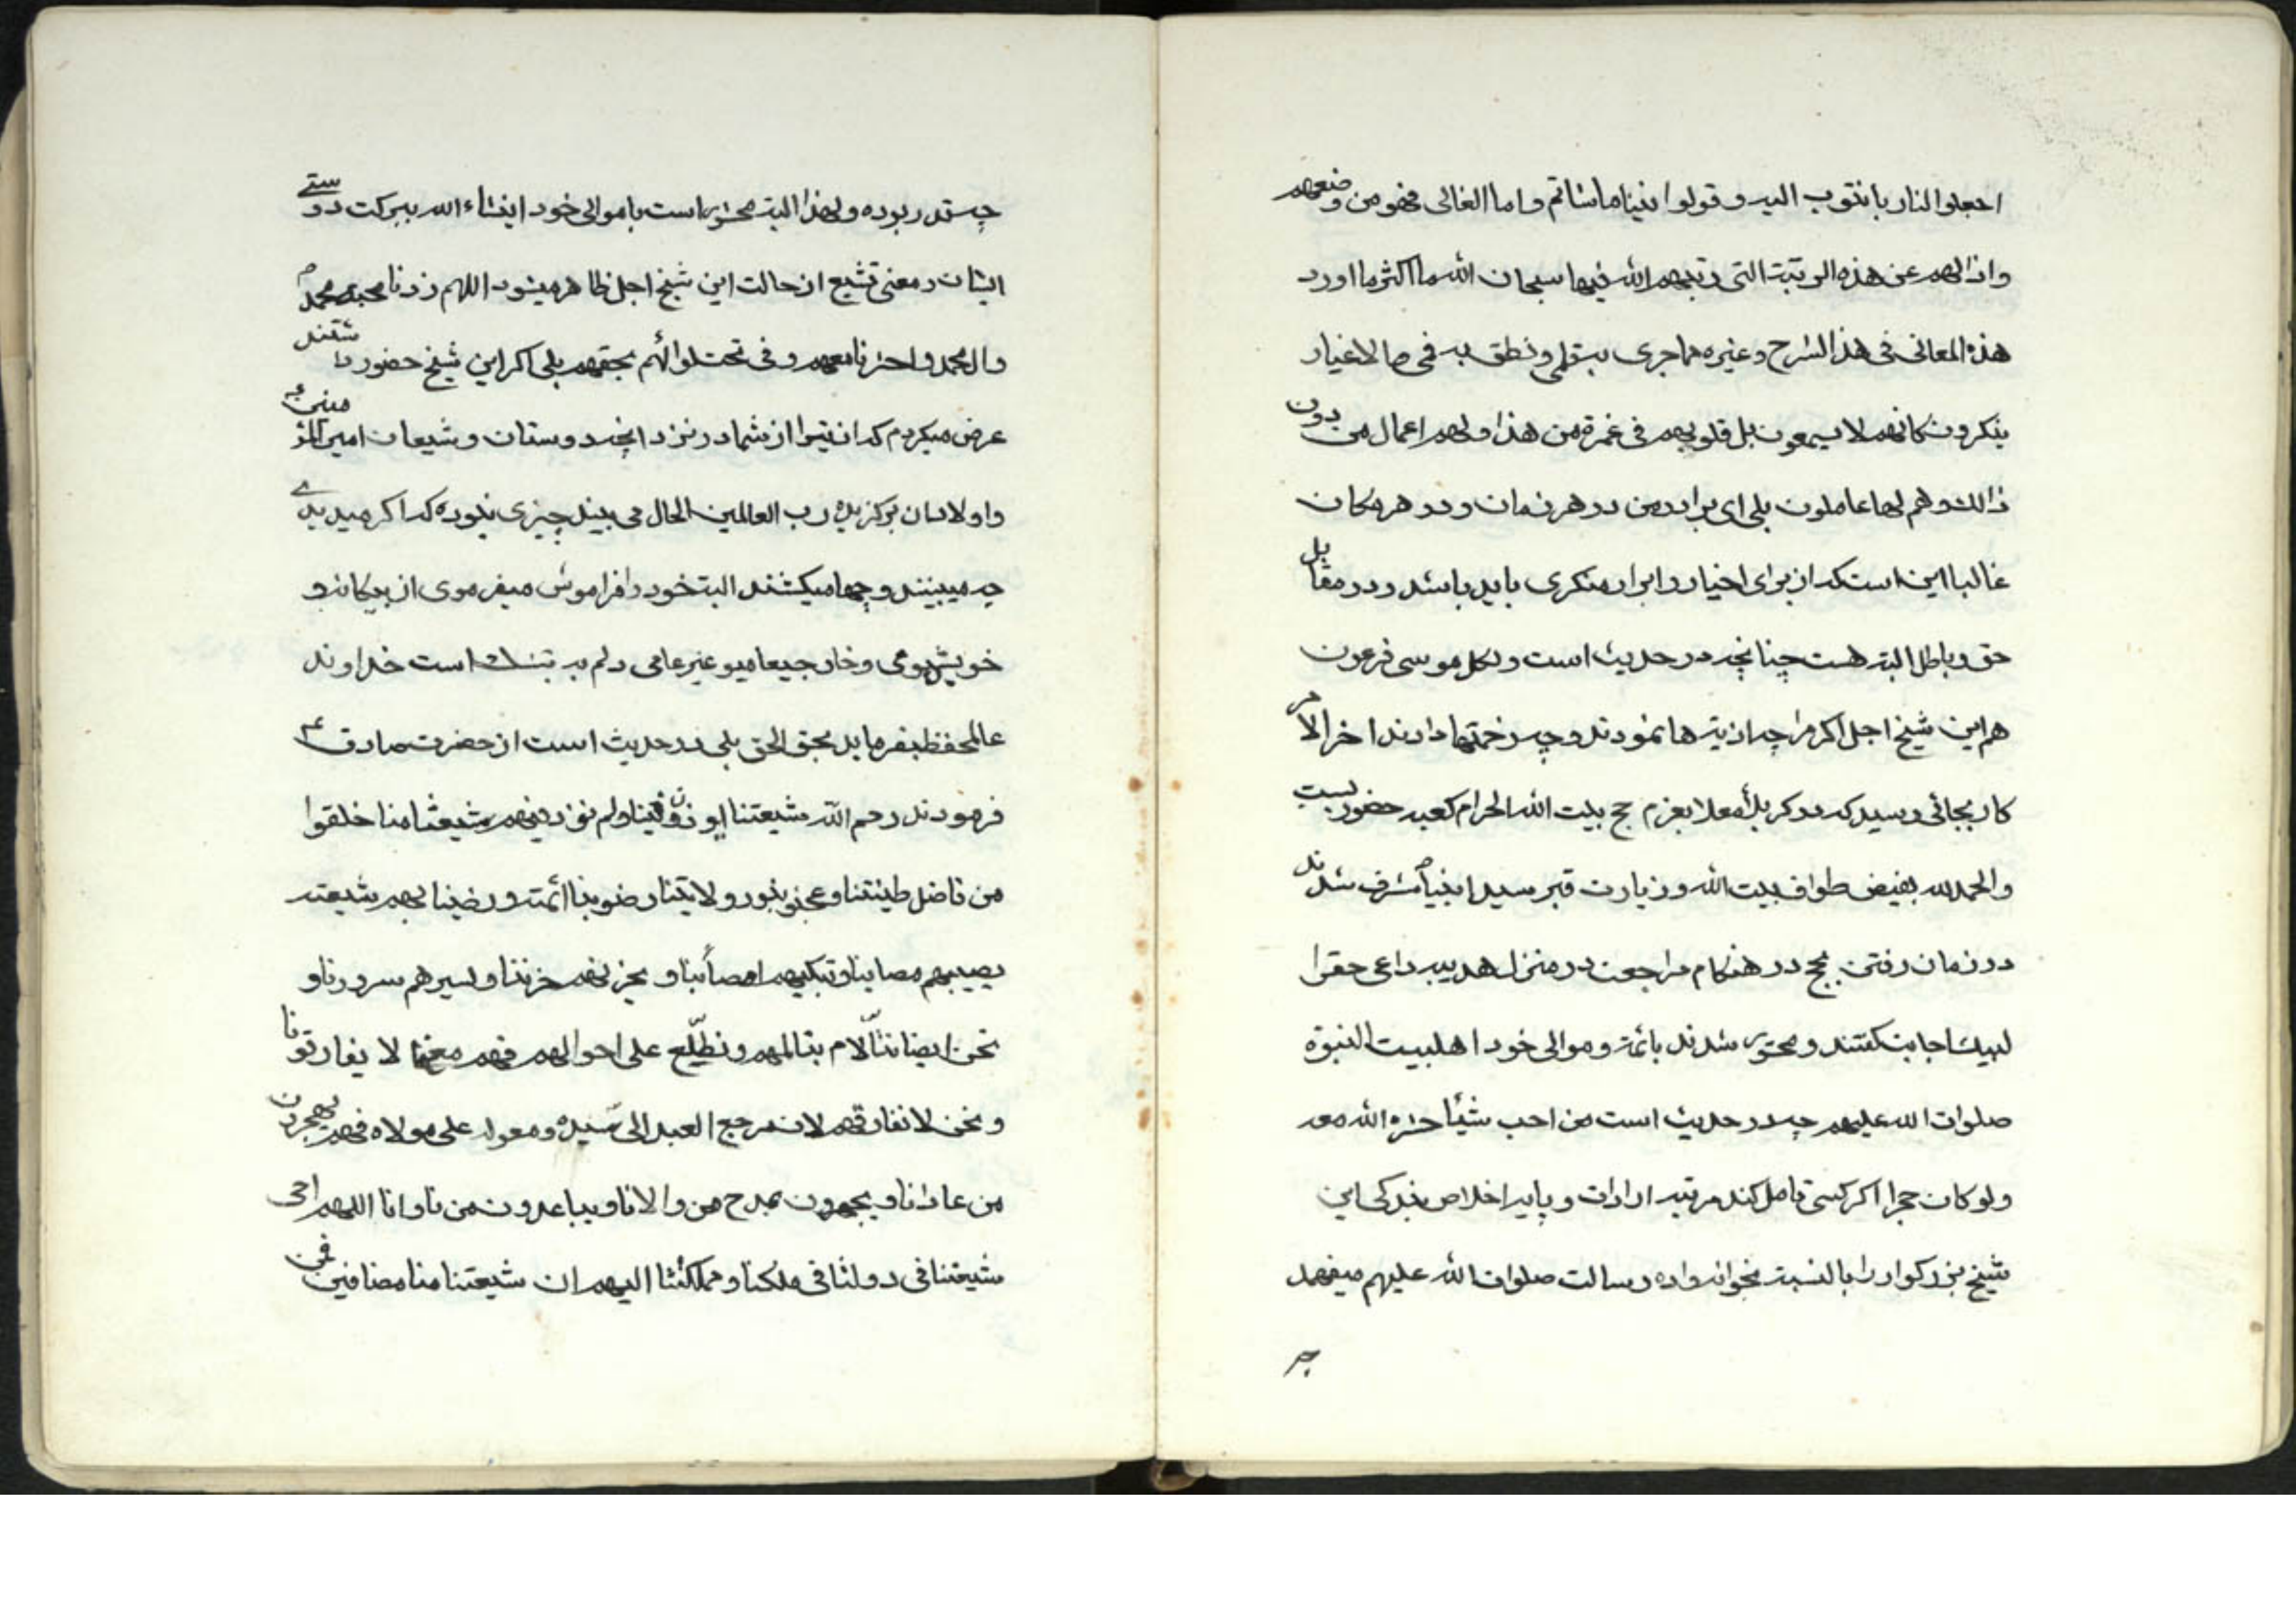 اجعلوا لنا ربا نتوب اليه و قولوا فينا ما شائتم و اما الغالى فهو من وضعهم
و ازالهم عن هذه الرتبة التى رتبهم الله فيها سبحان الله ما اكثر ما اورد
هذه المعانى فى هذا الشرح و غيره مما جرى به قلمى و نطق به فمى و الاغيار
ينكرون كانهم لا يسمعون بل قلوبهم فى غمرة من هذا و لهم اعمال من دون
ذالك و هم لها عاملون بلى اى برادر من در هر زمان و در هر مكان
غالبا اين است كه از براى اخيار و ابرار منكرى بايد باشد و در مقابل
حق و باطل البته هست چنانچه در حديث است و لكل موسى فرعون
هم اين شيخ اجل اكرم را چه اذيتها نمودند و چه زحمتها دادند اخر الامر
كار بجائى رسيد كه در كربلا معلا بعزم حج بيت الله الحرام كعبه حضور
و الحمد لله بفيض طواف بيت الله و زيارت قبر سيد انبيا ص مشرف شدند
در زمان رفتن بحج در هنكام مراجعت در منزل هديه داعى حق را
لبيك اجابت كفتند و محشور شدند بائمه و موالى خود اهلبيت النبوة
صلوات الله عليهم چه در حديث است من احب شيئا حشره الله معه
و لو كان حجرا اكر كسى تامل كند مرتبه ارادات و پايه اخلاص بندكى اين
شيخ بزركوار را بالنسبة بخوانواده رسالت صلوات الله عليهم ميفهمد
چه
چه قدر بوده و لهذا البته محشور است با موالى خود انشاء الله ببركت دوستے
ايشان و معنى تشيع از حالت اين شيخ اجل ظاهر ميشود اللهم زدنا محبة محمد ص
و ال محمد و احشرنا معهم و فى تحت لوائهم بحقهم بلى اكر اين شيخ حضور داشتند
عرض ميكردم كه ان تبرا از شما در نزد انچه دوستان و شيعان امير المؤمنين ع
و اولادان بركزيده رب العالمين الحال مى بينند چيزى نبوده كه اكر ميديدے
چه ميبينند و چها ميكشند البته خود را فراموش ميفرموى از بيكانه و
خويش و جميعا
عالم حفظ بفرمايد بحق الحق بلى در حديث است از حضرت صادق ع
فرمودند رحم الله شيعتنا اوذوا فينا و لم نوذ فيهم شيعتنا منا خلقوا
من فاضل طينتنا و عجنو بنور ولايتنا رضو بنا ائمة و رضينا بهم شيعته
يصيبهم مصابنا و تبكيهم امصائبنا و يحزنهم حزننا و يسرهم سرورنا و
نحن ايضا نتالّام بتالمهم و نطّلع على احوالهم فهم معنا لا يفارقونا
و نحن لا نفارقهم لان مرجع العبد الى سيده و معوله على مولاه فهم يهجرون
من عادانا و يجهرون بمدح من والانا و يباعدون من ناوانا اللهم احى
شيعتنا فى دولتنا فى ملكنا و مملكتنا اليهم ان شيعتنا منا مضافين فمن